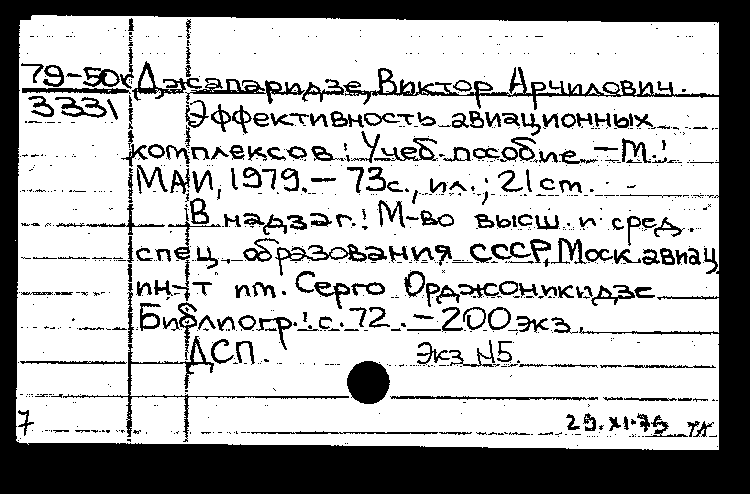 79-50к Джапаридзе, Виктор Арчилович.
3331 Эффективность авиационных
комплексов: Учеб. пособие — М.:
МАИ, 1979. — 73с., ил.; 21 cm. -
В надзаг.: М-во высш. и сред.
спец. образования СССР, Моск. авиац
ин-т им. Серго Орджоникидзе
Библиогр.: с. 72. — 200 экз.
ДСП. Экз №5.
7 29.XI.79 тк